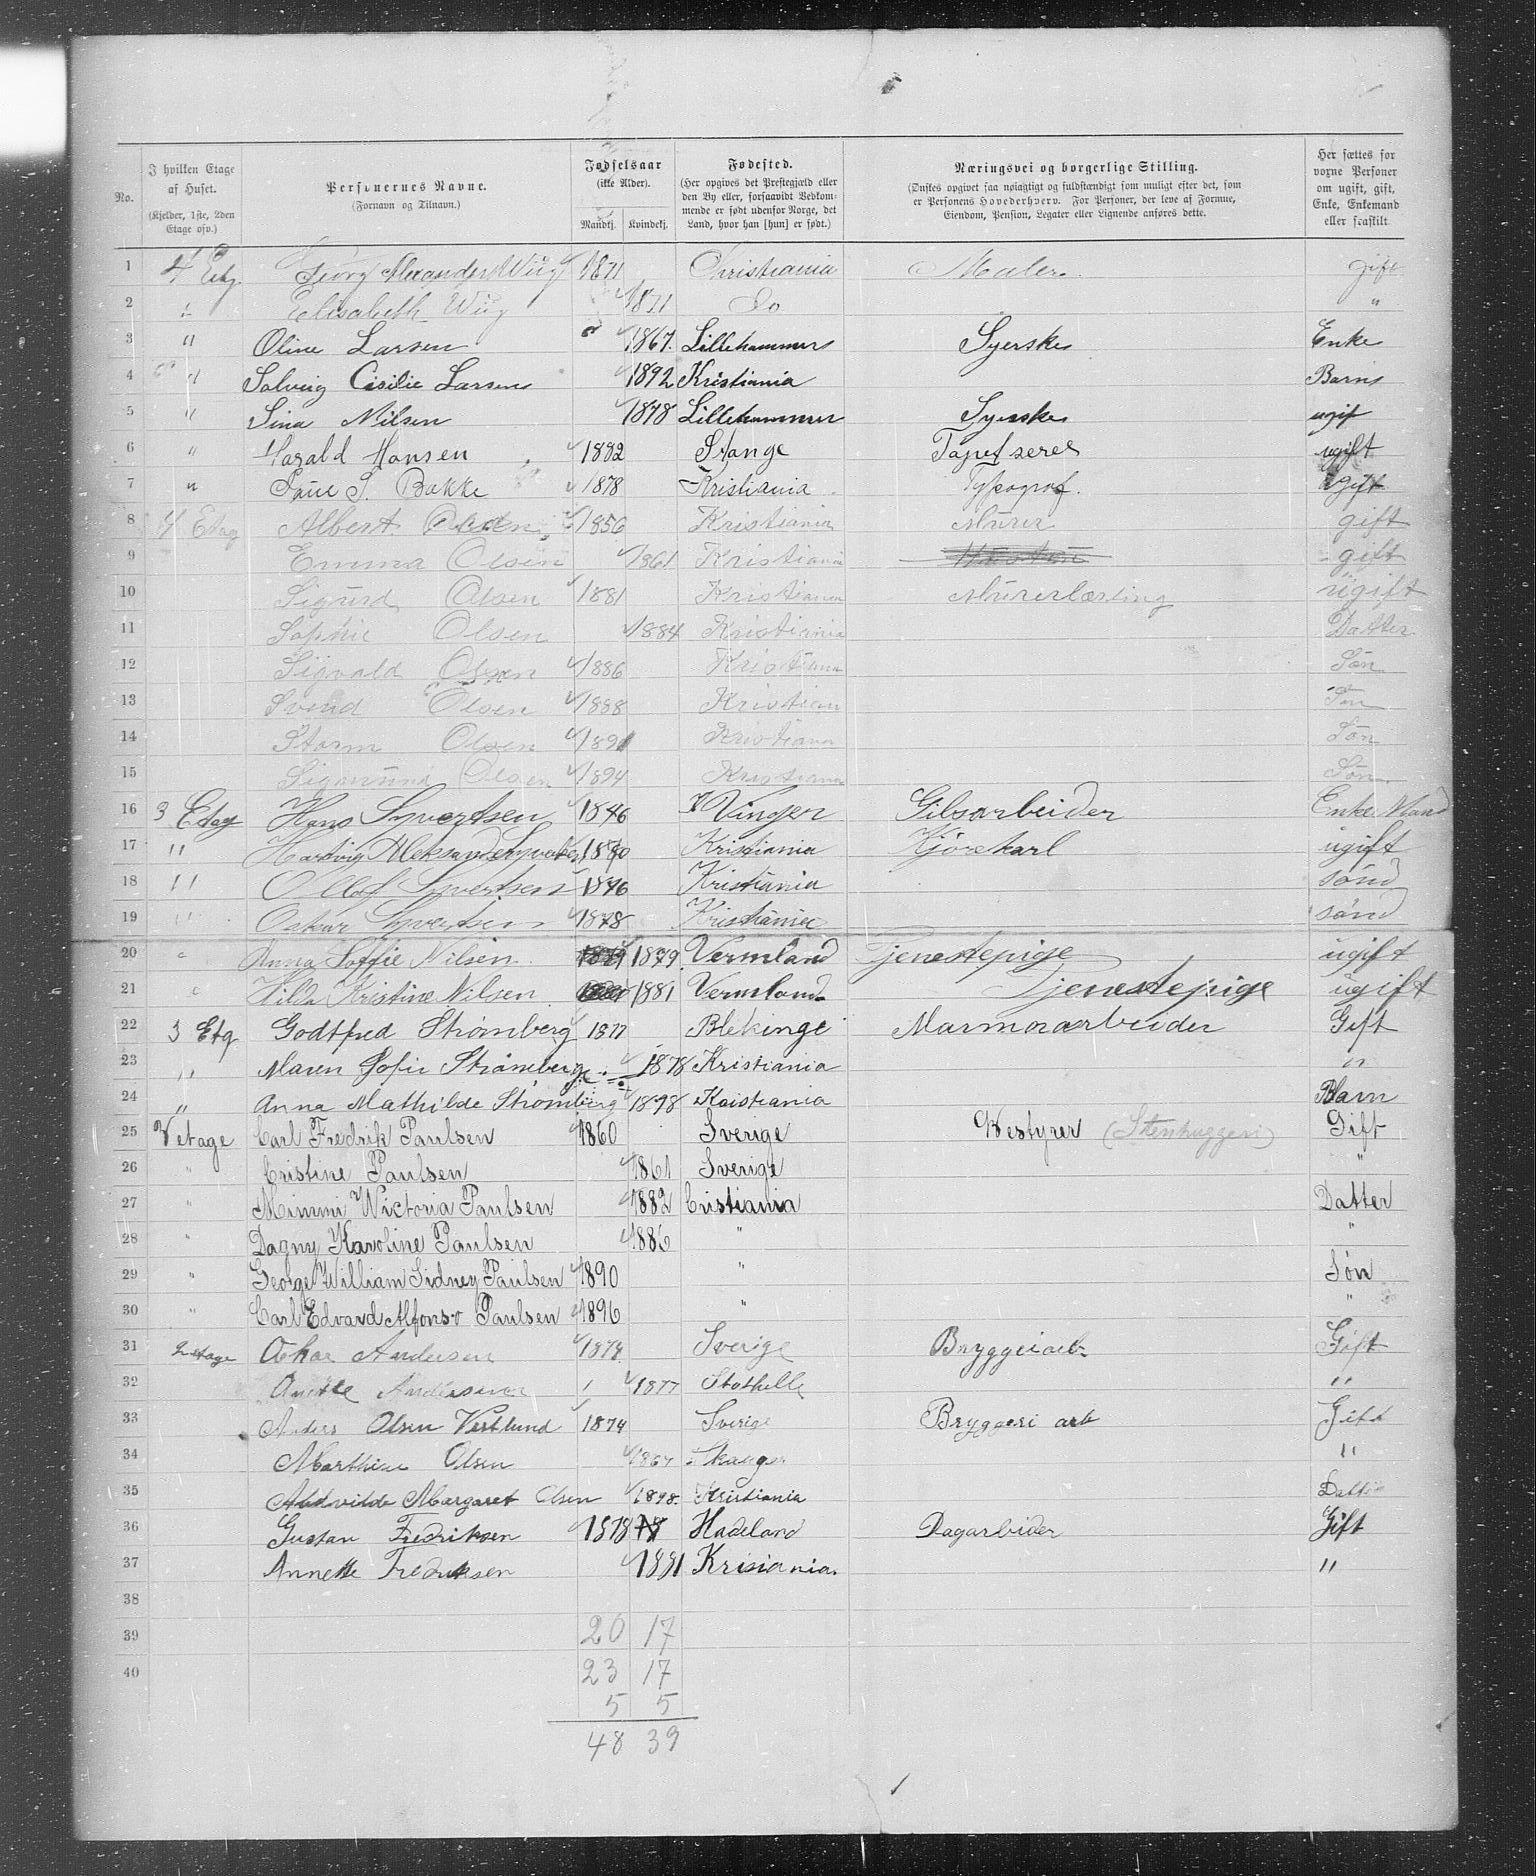 No. | I hvilken Etage af Huset. (Kjelder, 1ste, 2den Etage osv.) | Personernes Navne. (Fornavn og Tilnavn.) | Fødselsaar (ikke Alder). Mandkj. Kvindekj. | Fødested. (Her opgives det Prestegjæld eller den By eller, forsaavidt Vedkommende er født udenfor Norge, det Land, hvor han [hun] er født.) | Næringsvei og borgerlige Stilling. (Ønskes opgivet saa nøiagtigt og fuldstændigt som muligt efter det, som er Personens Hovederhverv. For Personer, der leve af Formue, Eiendom, Pension, Legater eller Lignende anføres dette. | Her sættes for voxne Personer om ugift, gift, Enke, Enkemand eller fraskilt.
1 4 Etg. Georg Alexander Wiig 1871 Christiania Maler. gift
2 " Elisabeth Wiig 1871 Do "
3 " Oline Larsen 1867. Lillehammer Syerske Enke
4 " Solveig Cisilie Larsen 1892 Kristiania Barn
5 " Sina Nilsen 1878 Lillehammer Syerske ugift
6 " Harald Hansen 1882 Stange Tapetserer ugift
7 " S. Bakke 1878 Kristiania Typograf. Ugift
8 4 Etag Albert Olsen 1856 Kristiania Murer gift
9 Emma Olsen 1861 Kristiania gift
10 Sigurd Olsen 1881 Kristiania Murerlærling ugift
11 Sophie Olsen 1884 Kristiania Datter
12 Sigvald Olsen 1886 Kristiania Søn
13 Svend Olsen 1888 Kristian Søn
14 Storm Olsen 1891 Kristiania Søn
15 Sigmund Olsen 1894 Kristiania Søn
16 3 Etag Hans Syvertsen 1846 Vinger Gibsarbeider Enke Mand
17 " Hartvig Aleksander Syvertsen 1870 Kristiania Kjørekarl ugift
18 " Olaf Syvertsen 1876 Kristiania sønd
19 " Oskar Syvertsen 1878 Kristiania sønd
20 " Anna Soffie Nilsen 1879 Vermland Tjenestepige ugift
21 " Hilda Kristine Nilsen 1881 Vermland Tjenestepige ugift
22 3 Etg Godtfred Strømberg 1877 Blekinge Marmorarbeider Gift
23 " Maren Sofie Strømberg 1878 Kristiania "
24 " Anna Mathilde Strømberg 1898 Kristiania Barn
25 V etage Carl Fredrik Paulsen 1860 Sverige Bestyrer (Stenhuggeri) Gift
26 " Cristine Paulsen 1861 Sverige "
27 " Mimmi Wictoria Paulsen 1882 Cristiania Datter
28 " Dagny Karoline Paulsen 1886 " "
29 " George William Sidney Paulsen 1890 " Søn
30 " Carl Edvard Alfonso Paulsen 1896 " "
31 2 etage Oskar Andersen 1878 Sverige Bryggeiarb. Gift
32 Anette Andersen 1877 Stathelle "
33 Anders Olsen Vestlund 1874 Sverige Bryggeri arb Gift
34 Marthine Olsen 1867 "
35 Margaret Olsen 1898. Kristiania Datter
36 Gustav Fredriksen 1878 Hadeland Dagarbider Gift
37 Annette Fredriksen 1881 Krisiania. "
38
39 20 17
40 23 17
5 5
48 39